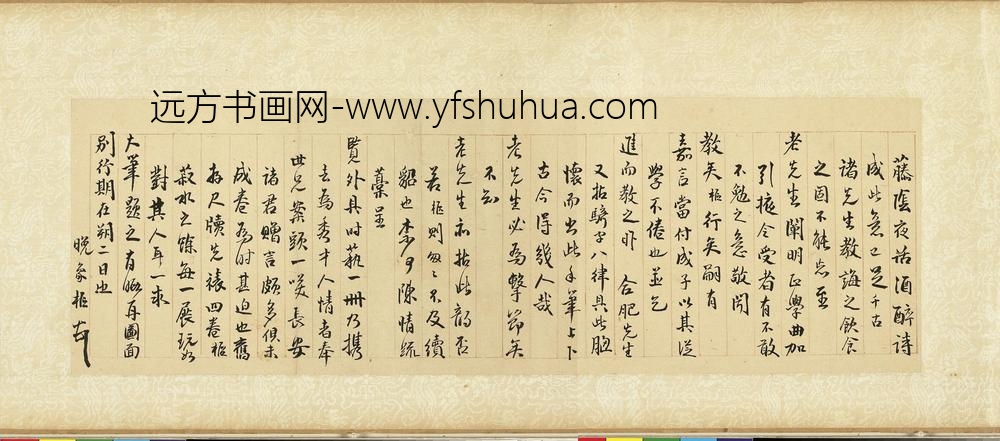 远方书画网-www.yfshuhua.com
藤陰夜話酒醉詩
成此意已足千古
諸先生教誨之飲食
之固不能忘至
老先生闡明正學曲加
引掖令受者有不敢
不勉之意敬聞
教矣柜行矣嗣有
嘉言當付成子以其從
學不倦也並乞
進而教之外 合肥先生
又拈騎字八律具此胸
懷而出此手筆上下
古今得幾人哉
老先生必為擊節矣
不知
老先生亦拈此韵否
若柜則匆匆不及續
貂也 陳情統
藁呈
覽外具時藝一冊乃携
去為秀才人情者奉
世兄案頭一咲長安
諸君贈言頗多俱未
成卷為時甚迫也舊
存尺牘先裱四卷柜
菽水之餘每一展玩如
對其人耳一求
大筆題之有 再圖面
別行期在朔二日也
晚象柜